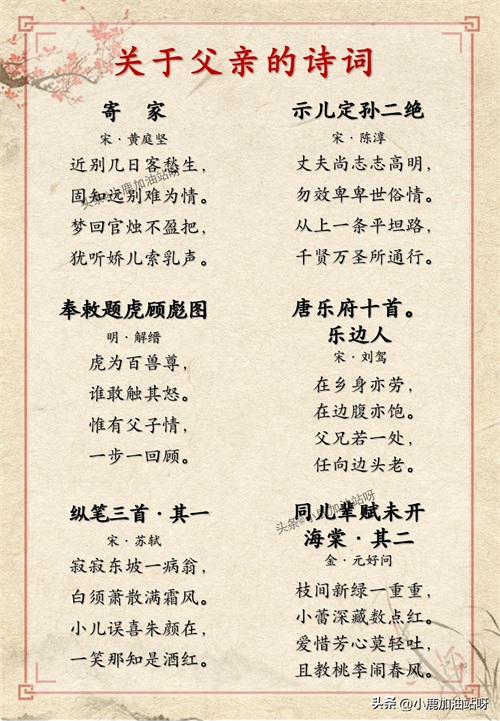 关于父亲的诗词
寄 家
宋·黄庭坚
近别几日客愁生，
固知远别难为情。
梦回官烛不盈把，
犹听娇儿索乳声。
示儿定孙二绝
宋·陈淳
丈夫尚志志高明，
勿效卑卑世俗情。
从上一条平坦路，
千贤万圣所通行。
奉敕题虎顾彪图
明·解缙
虎为百兽尊，
谁敢触其怒。
惟有父子情，
一步一回顾。
唐乐府十首。
乐边人
宋·刘驾
在乡身亦劳，
在边腹亦饱。
父兄若一处，
任向边头老。
纵笔三首·其一
宋·苏轼
寂寂东坡一病翁，
白须萧散满霜风。
小儿误喜朱颜在，
一笑那知是酒红。
同儿辈赋未开
海棠·其二
金·元好问
枝间新绿一重重，
小蕾深藏数点红。
爱惜芳心莫轻吐，
且教桃李闹春风。
头条@小鹿加油站呀
头条@小鹿加油站呀
头条 @小鹿加油站呀